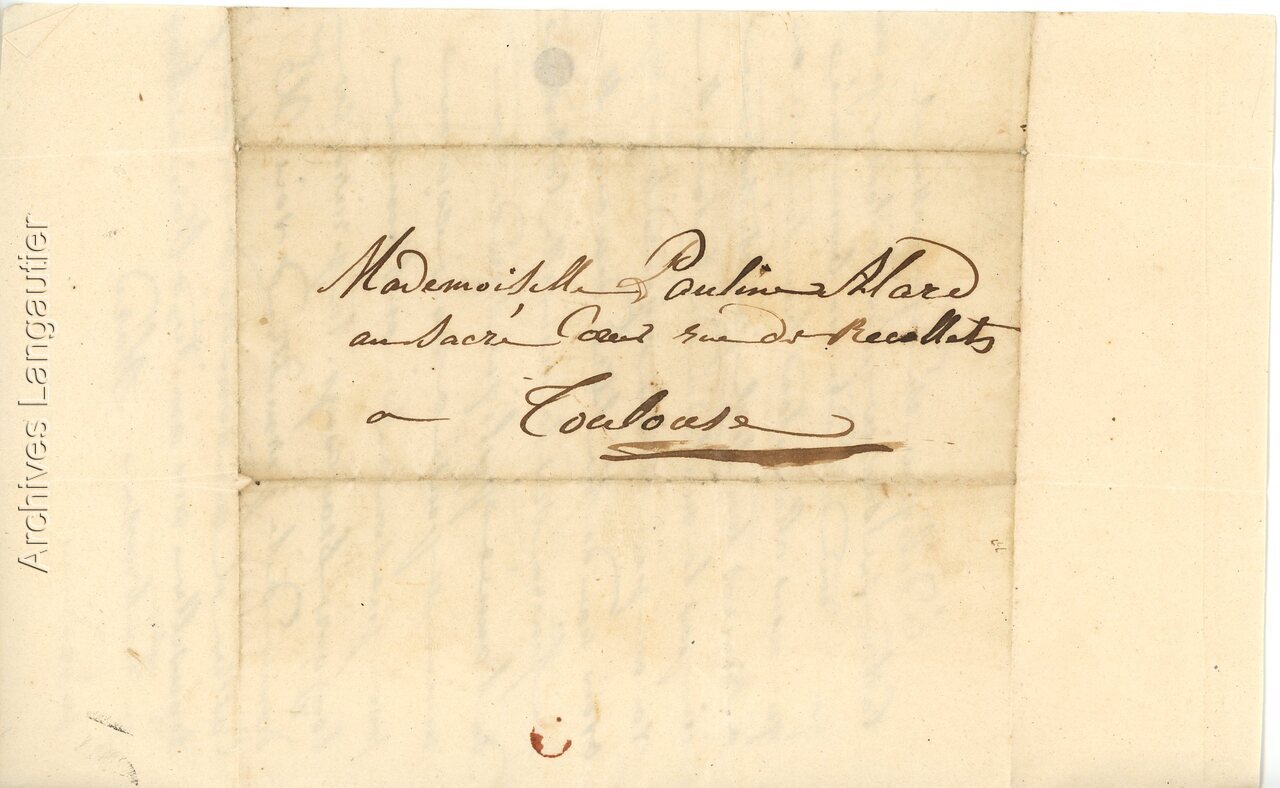 Mademoiselle Pauline Alard
au Sacré Cœur rue des Recollets
a Toulouse
Archives Langautier